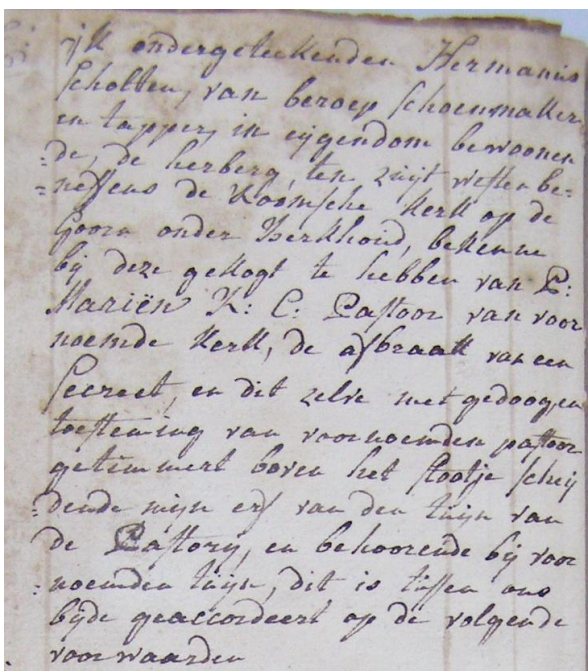 ijk ondergeteekenden Hermanus
Scholten, van beroep schoenmaker,
en tapper, in eijgendom bewoonen
=de, de herberg, ten zuijt westen be=
=neffens de Roomsche Kerk op de
Goorn onder Berkhoud, bekenne
bij deze gekogt te hebben van P:
Mariën R: C: Pastoor van voor
noemde Kerk, de afbraak van een
Secreet, en dit zelve met gedoogen
toesteming van voornoemden pastoor
getimmert boven het slootje scheij
=dende mijn erf van den tuijn van
de Pastorij, en behoorende bij voor
=noemden tuijn, dit is tussen ons
bijde geaccordeert op de volgende
voorwaarden